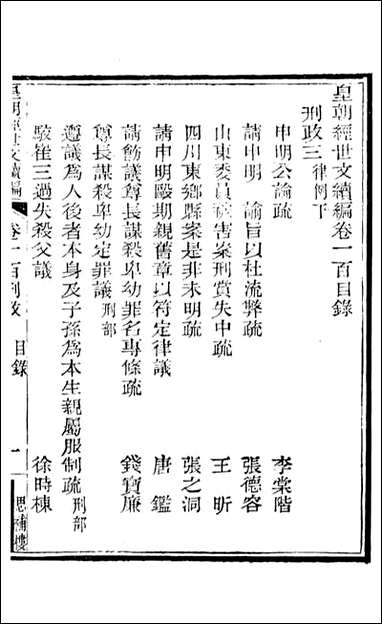 皇朝經世文續編卷一百目錄
刑政三律例下
申明公論疏 李棠階
請申明 諭旨以杜流弊疏 張德容
山東委員疏害案刑賞失中疏 王昕
四川東鄉縣案是非未明疏 張之洞
請申明毆期親舊章以符定律議 唐鑑
請飭議尊長謀殺卑幼罪名專條疏 錢寶廉
尊長謀殺卑幼定罪議 刑部
遵議為人後者本身及子孫為本生親屬服制疏 刑部
駮崔三過失殺父議 徐時棟
皇朝經世文續編 卷一百刑政 目錄 一 思補樓